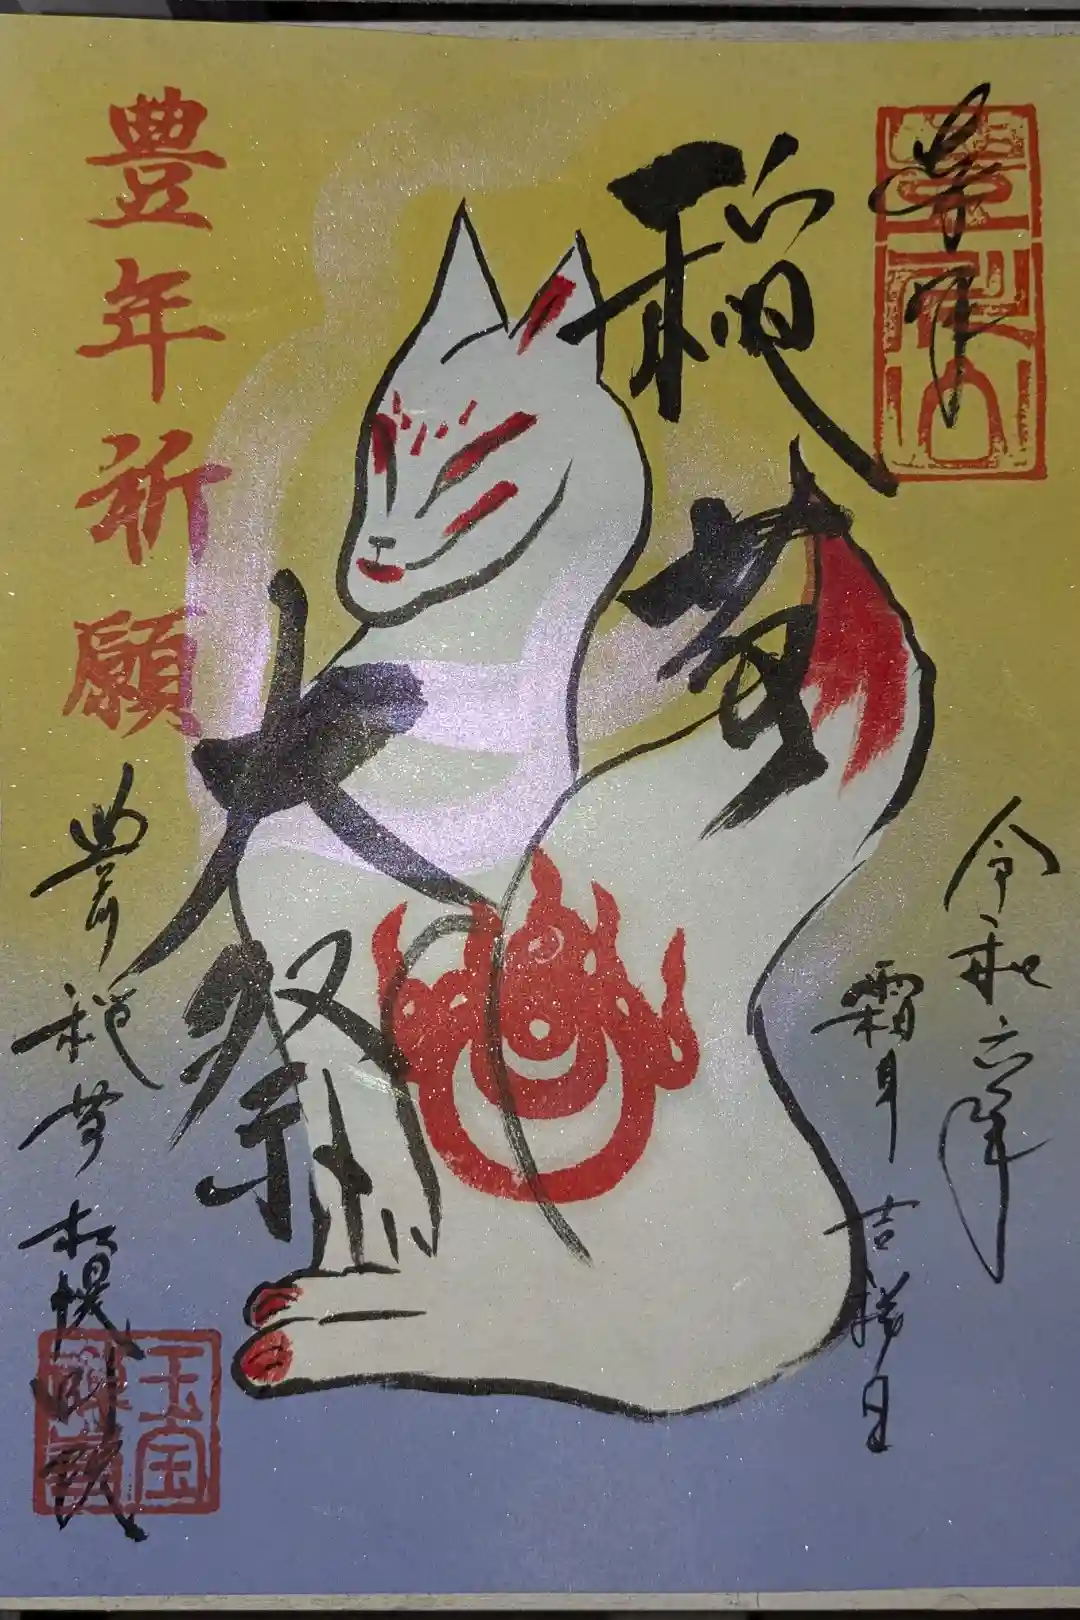 奉拝
令和六年
霜月 吉祥日
稲荷
大祭
豊年祈願
豊川稲荷札幌別院
玉宝